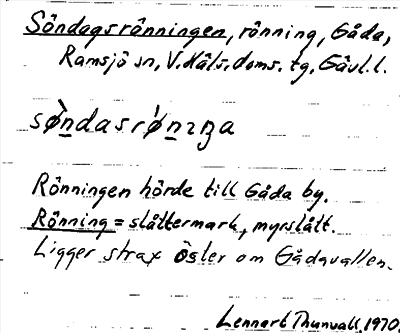 Söndagsrönningen, rönning, Gåda,
Ramsjö sn, V. Häls. doms. tg, Gävl. l.
Rönningen hörde till Gåda by.
Rönning = slåttermark, myrslått.
Ligger strax öster om Gådavallen.
Lennart Thunvall, 1970.